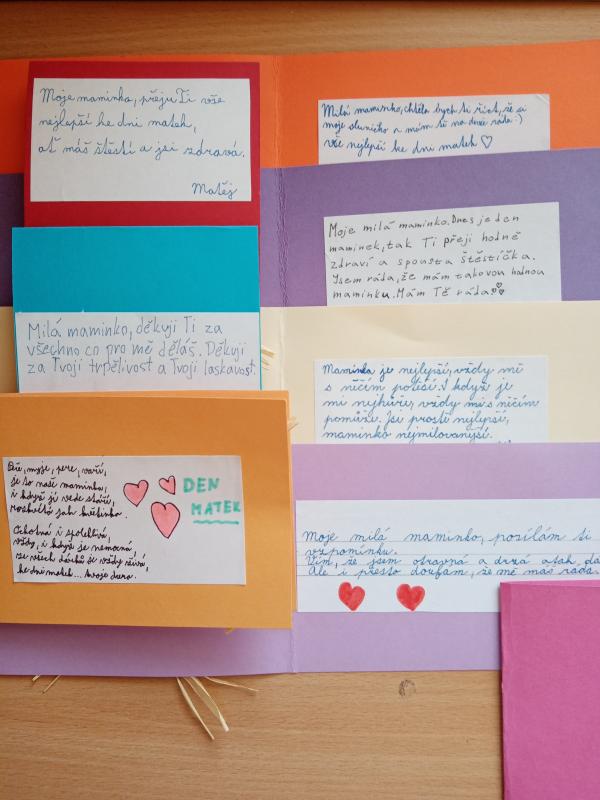 Moje maminko, přeju Ti vše
nejlepší ke dni matek,
ať máš štěstí a jsi zdravá.
Matěj
Milá maminko, chtěla bych ti říct, že si
moje sluníčko a mám tě na dně ráda :)
vše nejlepší ke dni matek ♡
Moje milá maminko. Dnes je den
maminek, tak Ti přeji hodně
zdraví a spousta štěstíčka.
Jsem ráda, že mám takovou hodnou
maminku. Mám Tě ráda
Milá maminko, děkuji Ti za
všechno co pro mě děláš. Děkuji
za Tvoji trpělivost a Tvoji laskavost.
Maminka je nejlepší, vždy mě
s něčím potěší. I když je
mi nejhůře, vždy mi s něčím
pomůže. Jsi prostě nejlepší,
maminko nejmilovanjší.
myje, pere, vaří,
je to naše maminka,
i když jí vede stáří,
rozkvétá jak květinka.
Ochotná i spolehlivá,
vždy, i když je nemocná,
ze všech dárků je vždy
ke dni matek... tvoje dcera.
DEN
MATEK
Moje milá maminko, posílám ti
vzpomínku.
Vím, že jsem otravná a drzá
Ale i přesto doufám, že mě máš ráda.